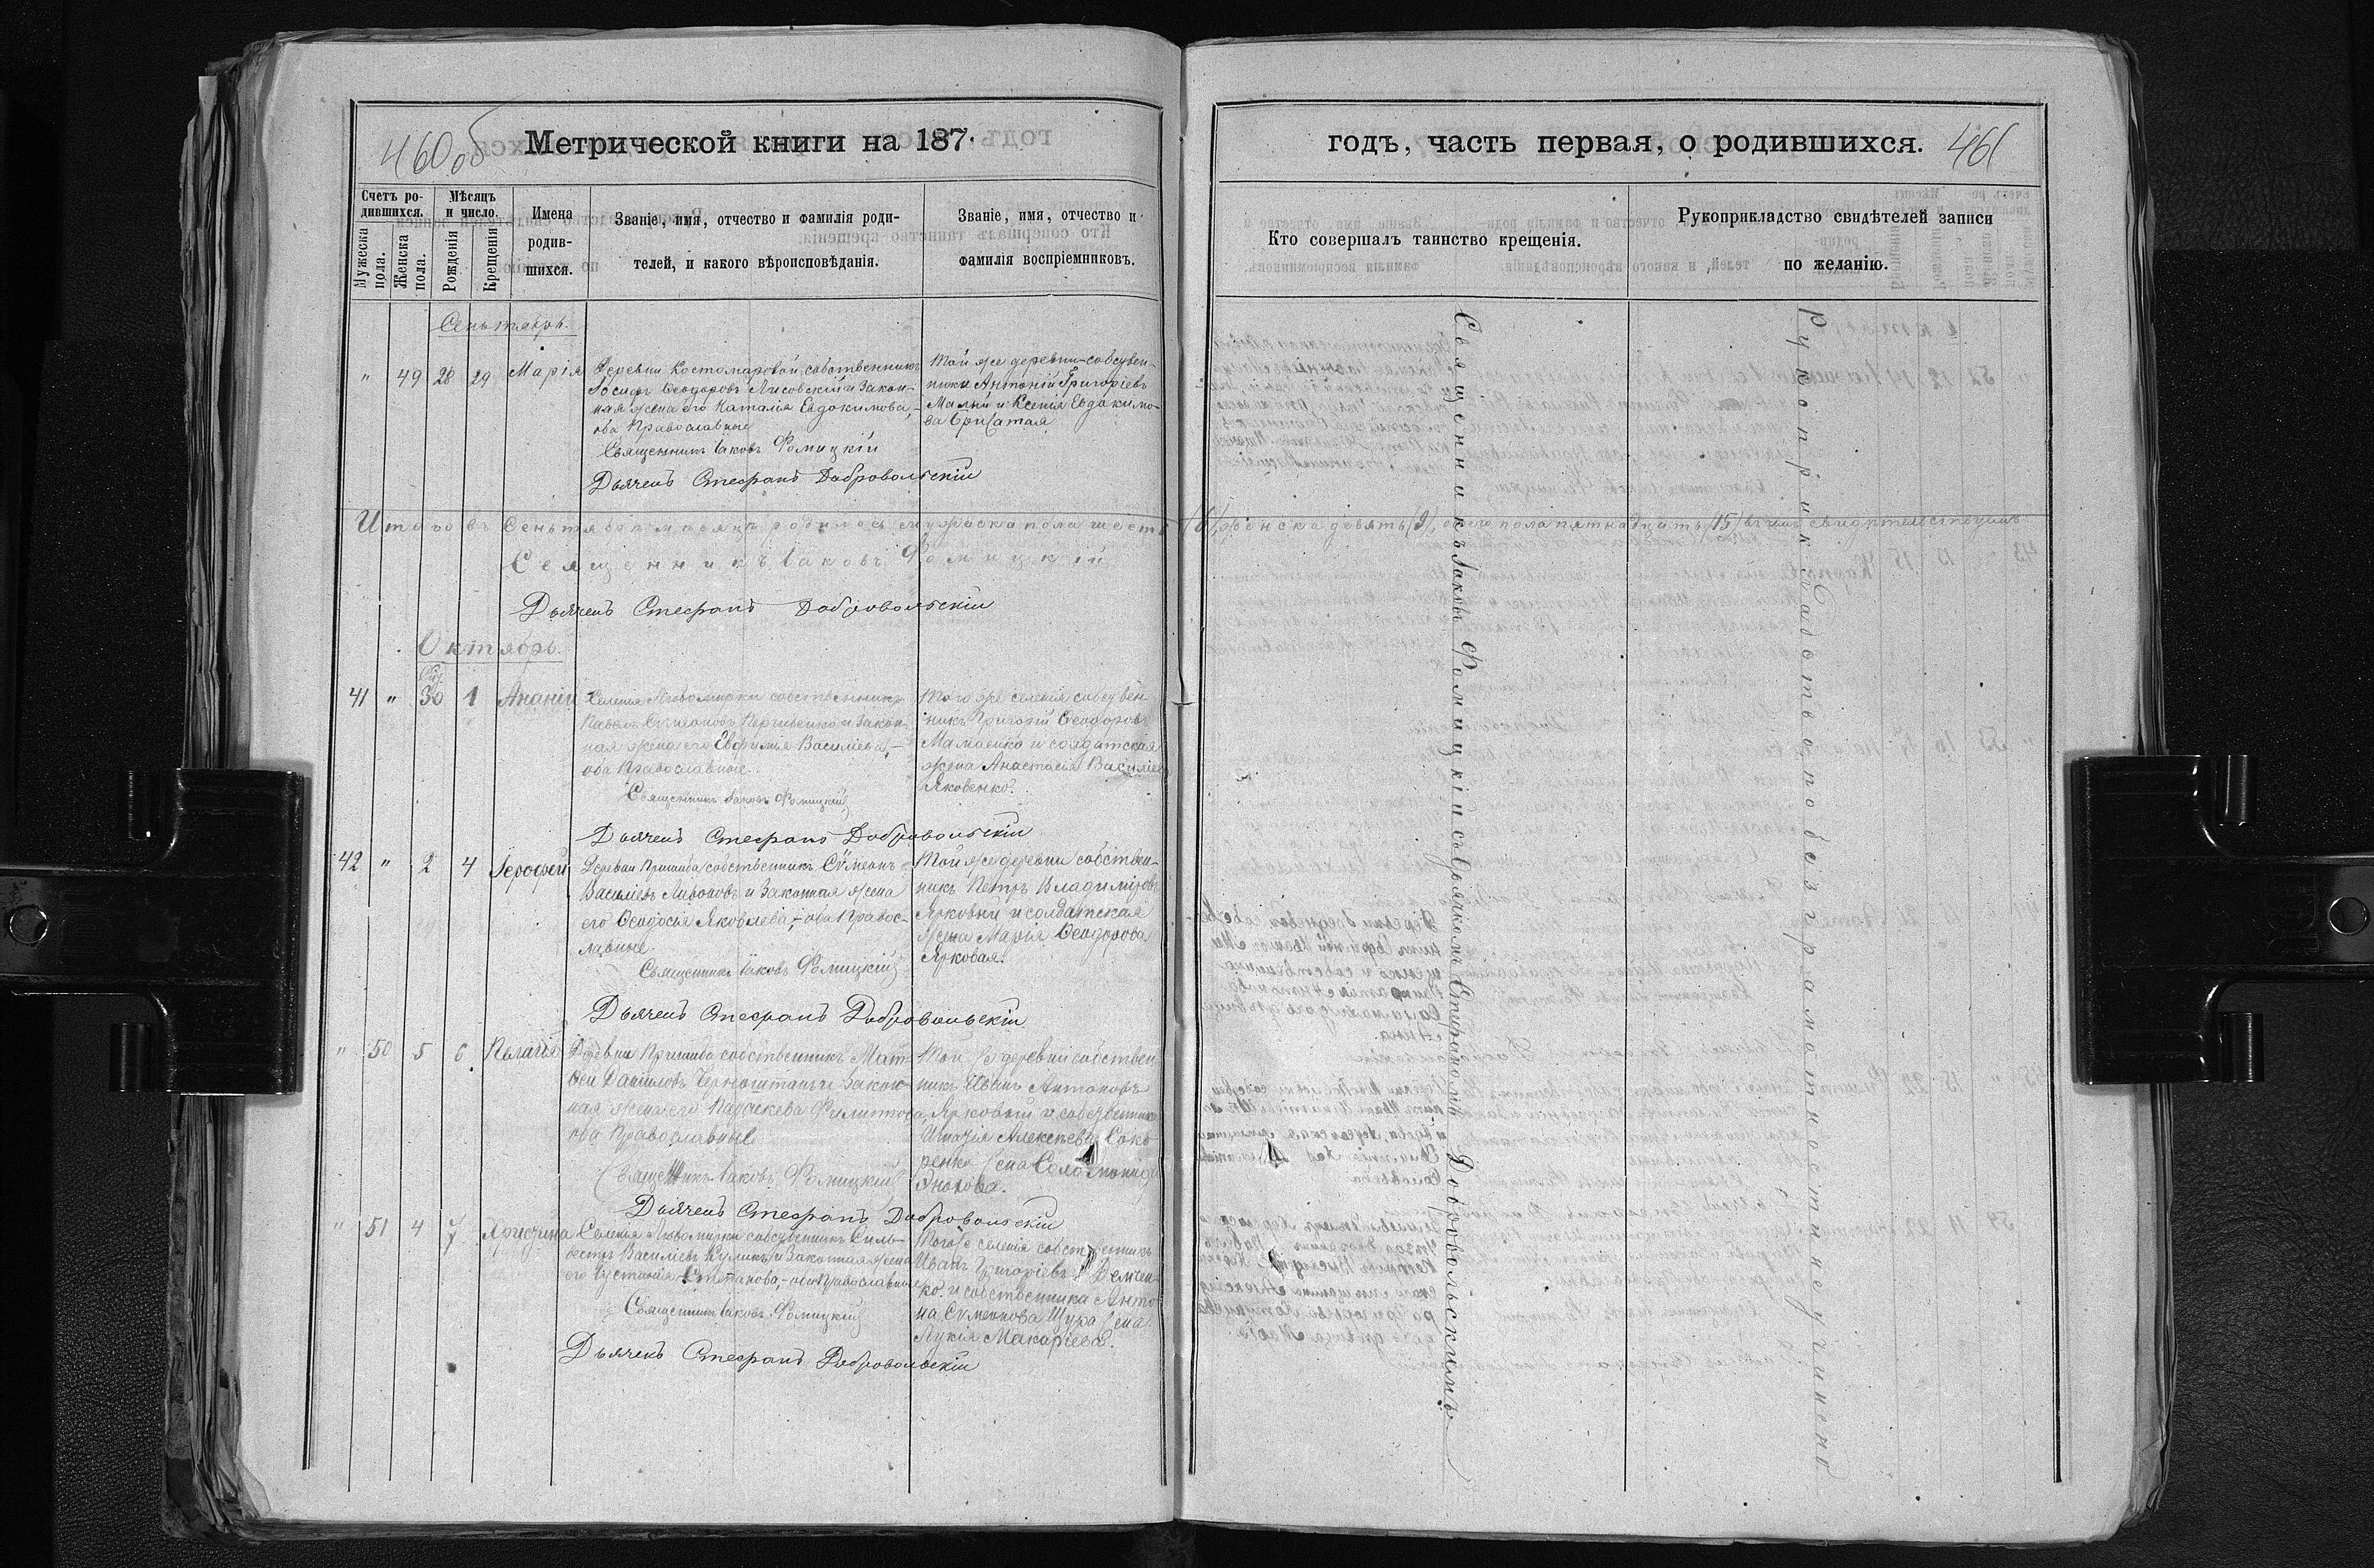 460 об
Метрической книги на 187
годъ, часть первая, о родившихся.
461
Счетъ родившихся.
Мужеска пола.
Женска пола.
Мѣсяцъ и число.
Рожденія
Крещенія
Имена родив-
шихся.
Званіе, имя, отчество и фамилія роди-
телей, и какого вѣроисповѣданія.
Званіе, имя, отчество и
фамилія воспріемниковъ.
Кто совершалъ таинство крещенія.
Рукоприкладство свидѣтелей записи
по желанію.
Сеньтябрь.
" 49 28 29 Марія
Деревни Костомаровой, собственникъ
Іосифъ Ѳеодоровъ Лисовскій и закон-
ная жена его Наталія Евдокимова,-
оба Православные
Священникъ Іаковъ Фомицкій
Дьячекъ Стефанъ Добровольскій
Той же деревни собствен-
ники Антоній Григоріевъ
и Ксенія Евдокимо-
ва
Итого въ Сеньтябрѣ мѣсяцѣ родилось мужеска пола шесть (6), женска девять (9), обоего пола пятнадцать (15) въ чемъ свидѣтельствуемъ
Священникъ Іаковъ Фомицкій
Дьячекъ Стефанъ Добровольскій
Октябрь.
41 " 30 1 Ананій
Селенія Любомирки собственникъ
Павелъ Сѵмеоновъ и закон-
ная жена его Евфимія Василіева,-
оба Православные.
Священникъ Іаковъ Фомицкій
Дьячекъ Стефанъ Добровольскій
Того же селенія собствен-
никъ Григорій Ѳеодоровъ
Мамаенко и солдатская
жена Анастасія Василіева
Яковенко.
42 " 2 4 Іероѳей
Деревни Пришиба собственникъ Сѵмеонъ
Василіевъ и законная жена
его Ѳеодосія Яковлева,- оба Правос-
лавные.
Священникъ Іаковъ Фомицкій
Дьячекъ Стефанъ Добровольскій
Той же деревни собствен-
никъ Петръ Владиміровъ
Ярковый и солдатская
жена Марія Ѳеодорова
Ярковая.
" 50 5 6 Пелагія
Деревни Пришиба собственникъ Мат-
ѳей Даніиловъ и закон-
ная жена его Параскева Филиппова,
оба Православные
Священникъ Іаковъ Фомицкій
Дьячекъ Стефанъ Добровольскій
Той же деревни собствен-
никъ Иванъ Антоновъ
Ярковый и собственника
Игнатія Алексѣева
жена Соломонида
" 51 4 7 Христина
Селенія Любомирки собственникъ Силь-
вестръ Василіевъ Куликъ и законная жена
его Іустинія Степанова,- оба Православные
Священникъ Іаковъ Фомицкій
Дьячекъ Стефанъ Добровольскій
Того же селенія собственникъ
Иванъ Григоріевъ Демчен-
ко и собственника Анто-
на Сѵмеонова Щура жена
Лукія Макаріева.
Священникъ Іаковъ Фомицкій съ дьячкомъ Стефаномъ Добровольскимъ
Рукоприкладство по безграмотности не учинено